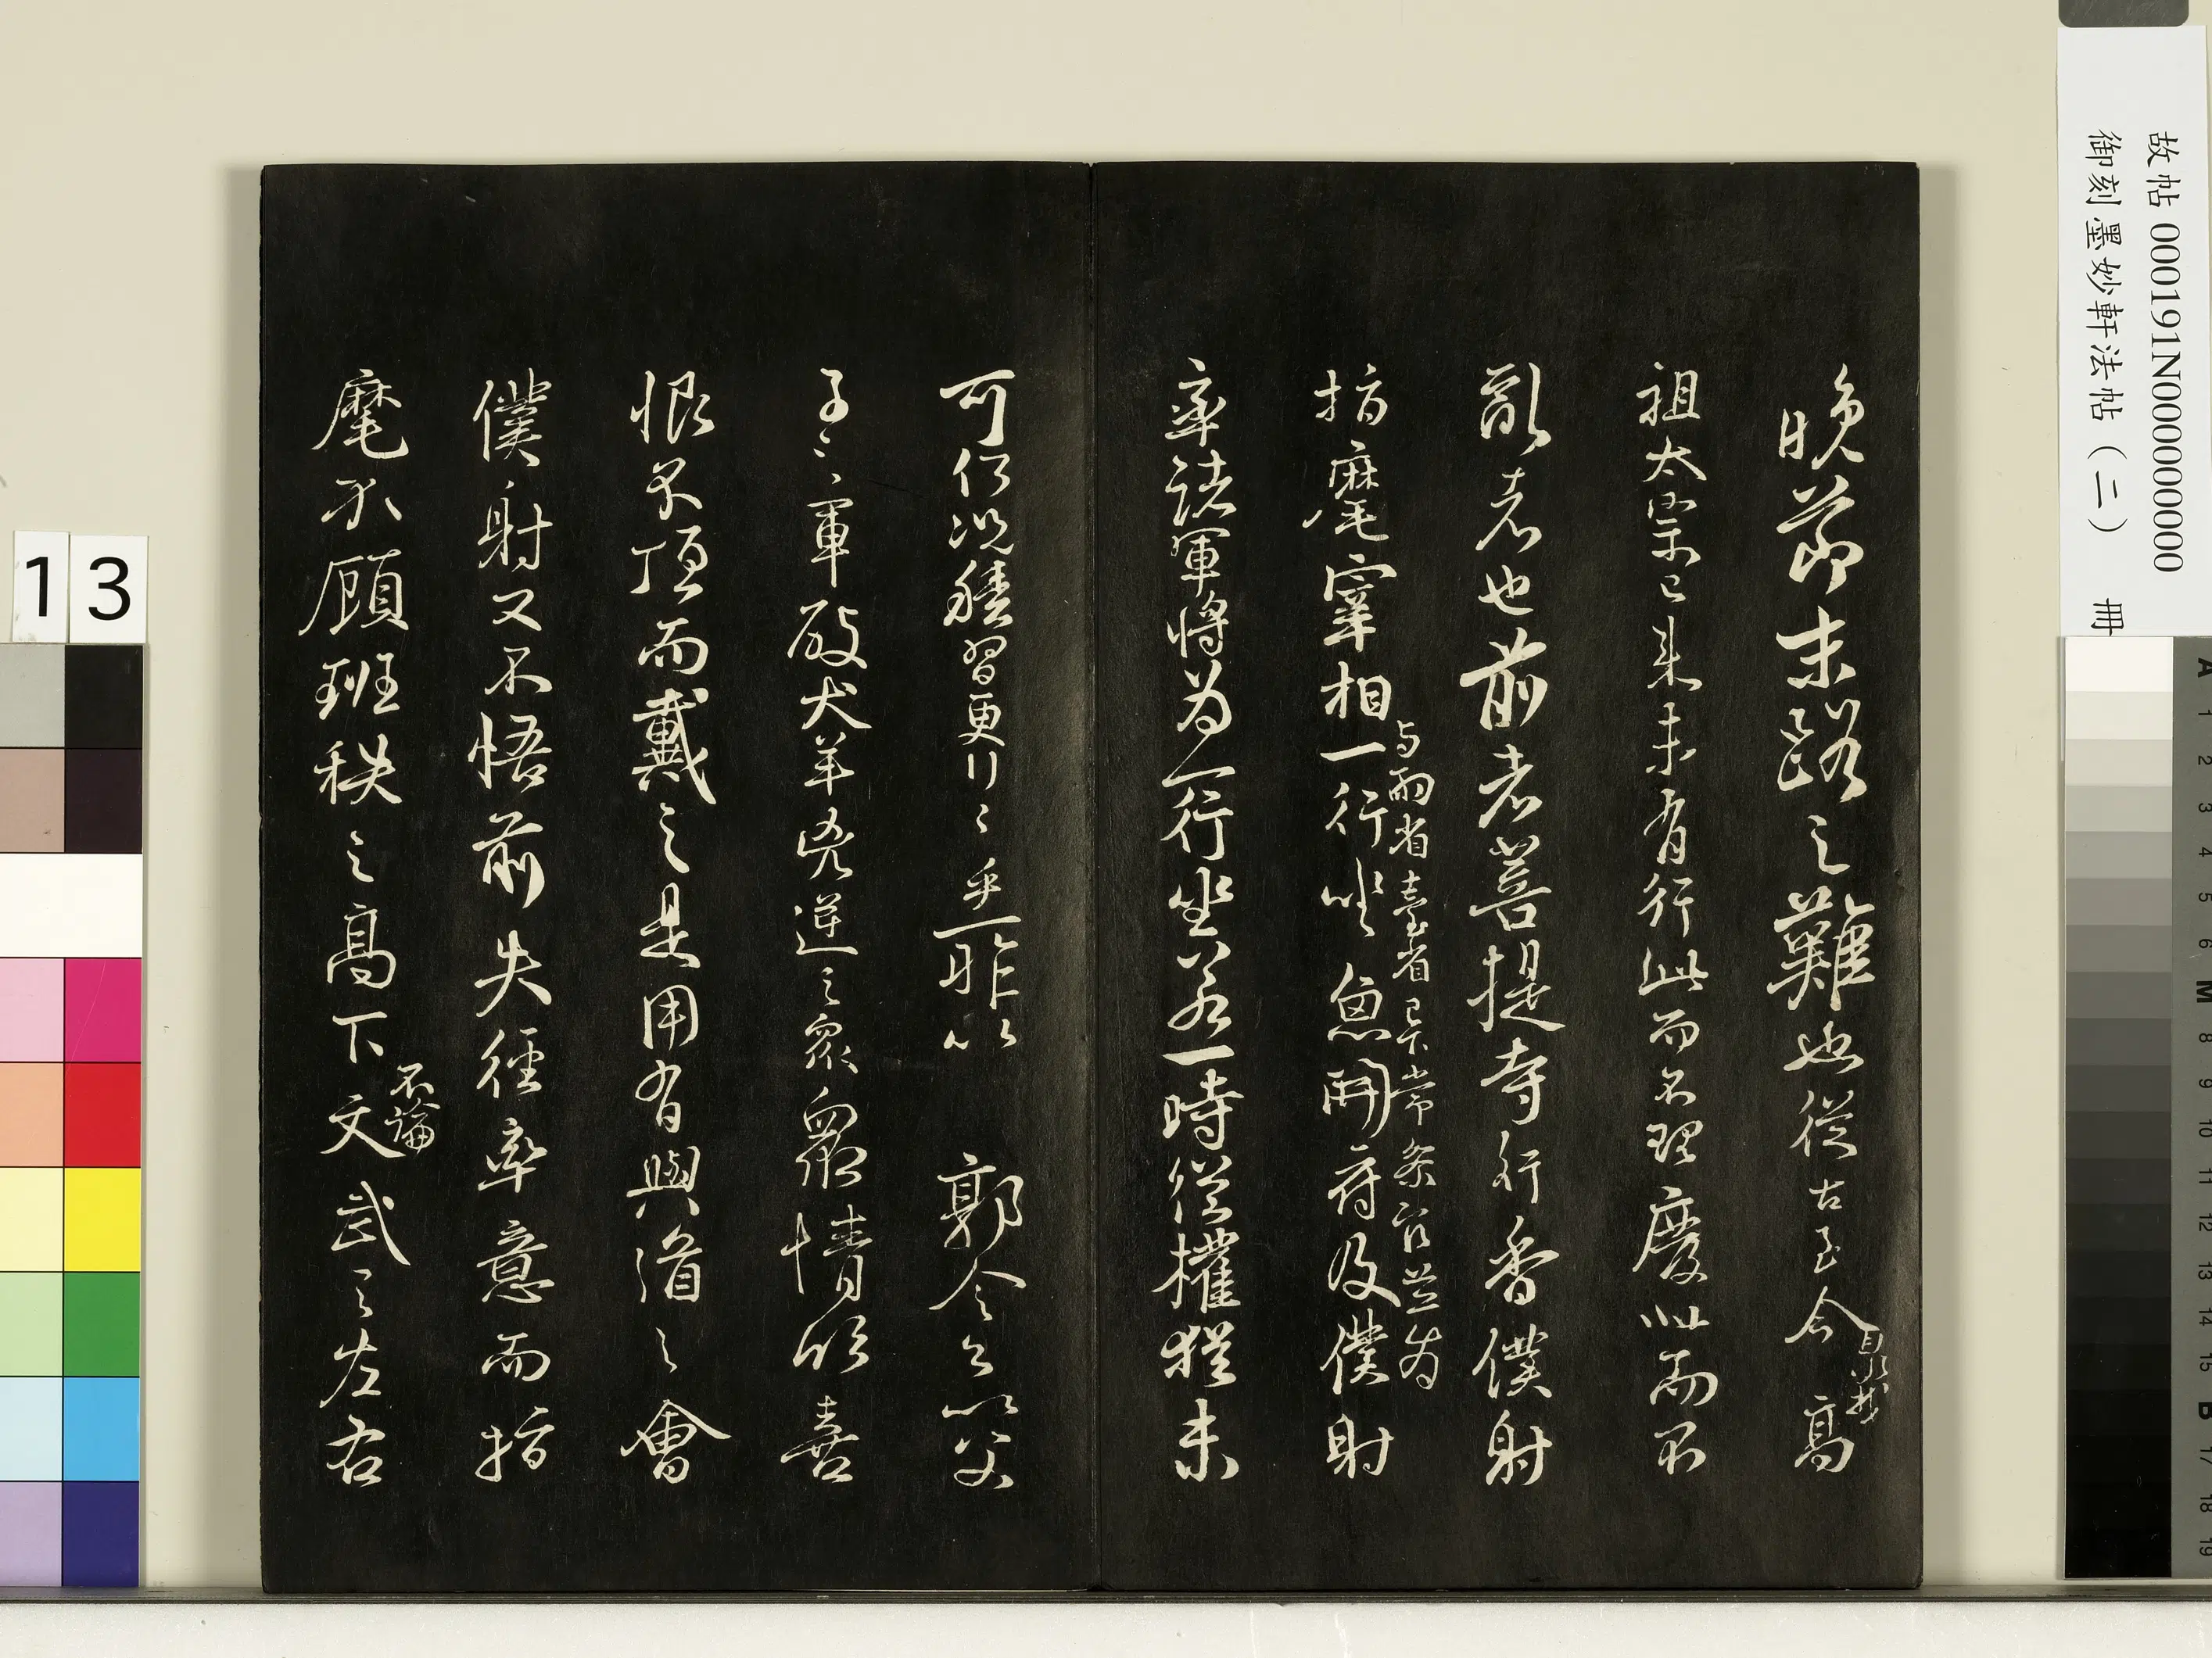 故帖 000191N000000000
御刻墨妙軒法帖（二） 冊
晚莭末路之難也從古至今洎我高
祖太宗已来未有行此而不理廢此而不
亂者也前者菩提寺行香僕射
指麾宰相与兩省臺省已下常參官並为一行坐魚開府及僕射
率諸軍將为一行坐若一時從權猶未
可何况積習更行之乎一昨以郭令公以父
子之軍破犬羊兇逆之衆衆情欣喜
恨不頂而戴之是用有興道之會
僕射又不悟前失徑率意而指
麾不顧班秩之高下不論文武之左右
13